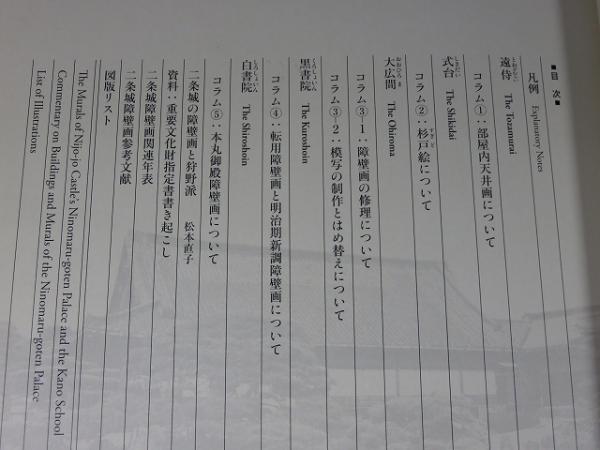 ■目 次■
凡例 Explanatory Notes
遠侍 とおざむらい The Tozamurai
コラム①：部屋内天井画について
式台 しきだい The Shikidai
コラム②：杉戸絵について すぎと
大広間 おおひろま The Ohiroma
コラム③-1：障壁画の修理について
コラム③-2：模写の制作とはめ替えについて
黒書院 くろしょいん The Kuroshoin
コラム④：転用障壁画と明治期新調障壁画について
白書院 しろしょいん The Shiroshoin
コラム⑤：本丸御殿障壁画について
二条城の障壁画と狩野派 松本直子
資料：重要文化財指定書書き起こし
二条城障壁画関連年表
二条城障壁画参考文献
図版リスト
The Murals of Nijo-jo Castle's Ninomaru-goten Palace and the Kano School
Commentary on Buildings and Murals of the Ninomaru-goten Palace
List of Illustrations